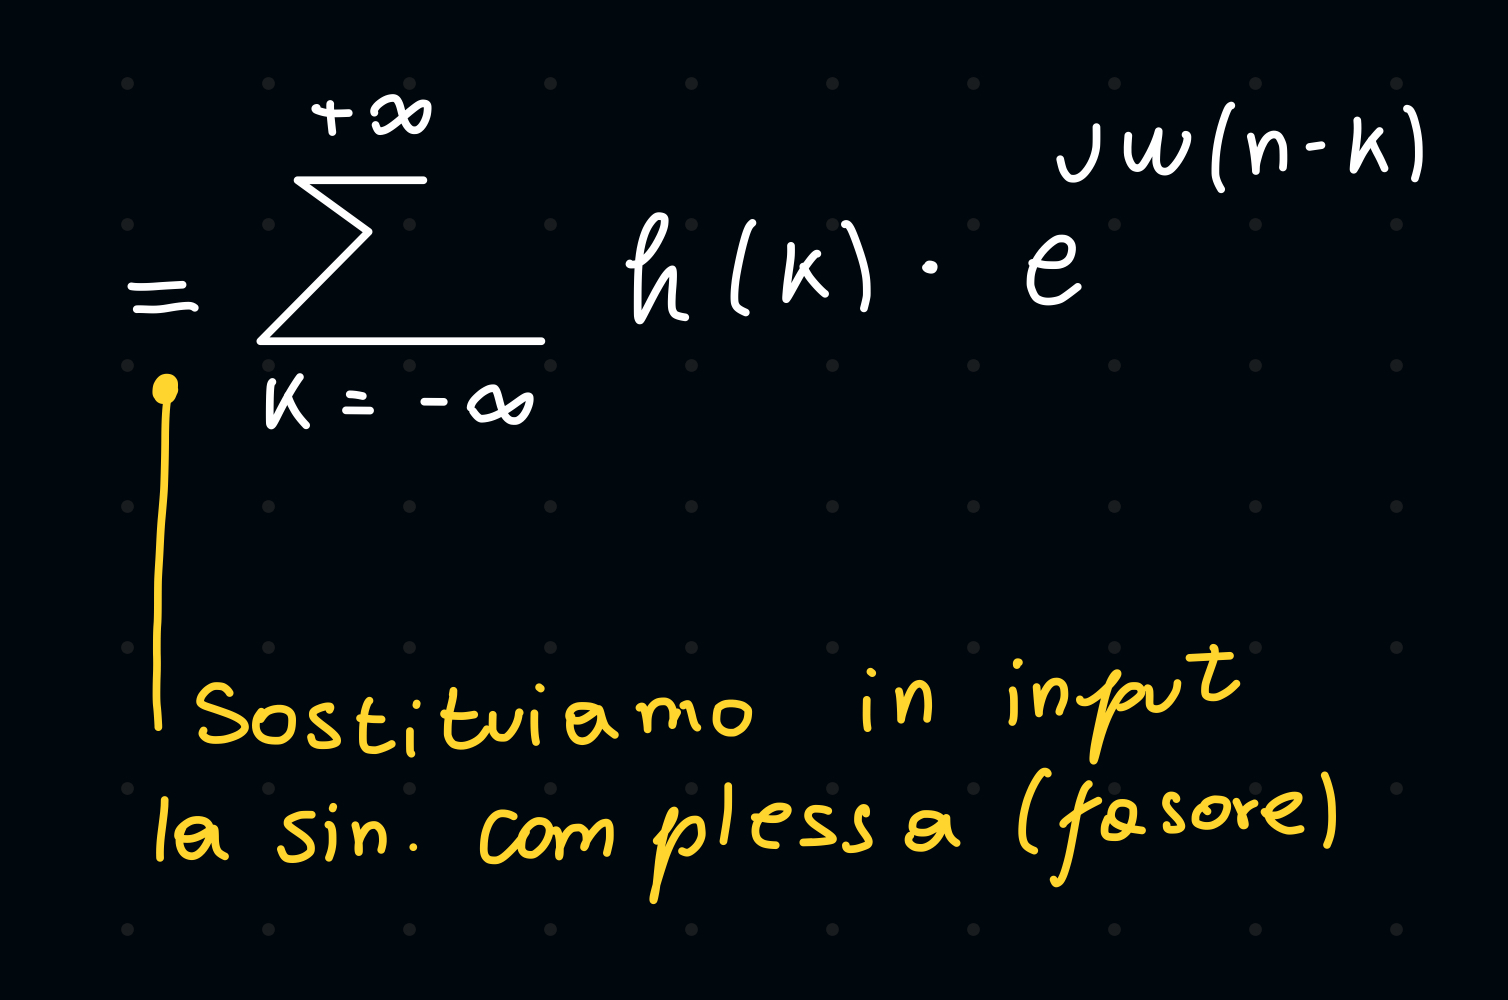 = +∞ ∑ K = -∞ h(k) · e^{jw(n-k)}
Sostituiamo in input
la sin. complessa (fasore)